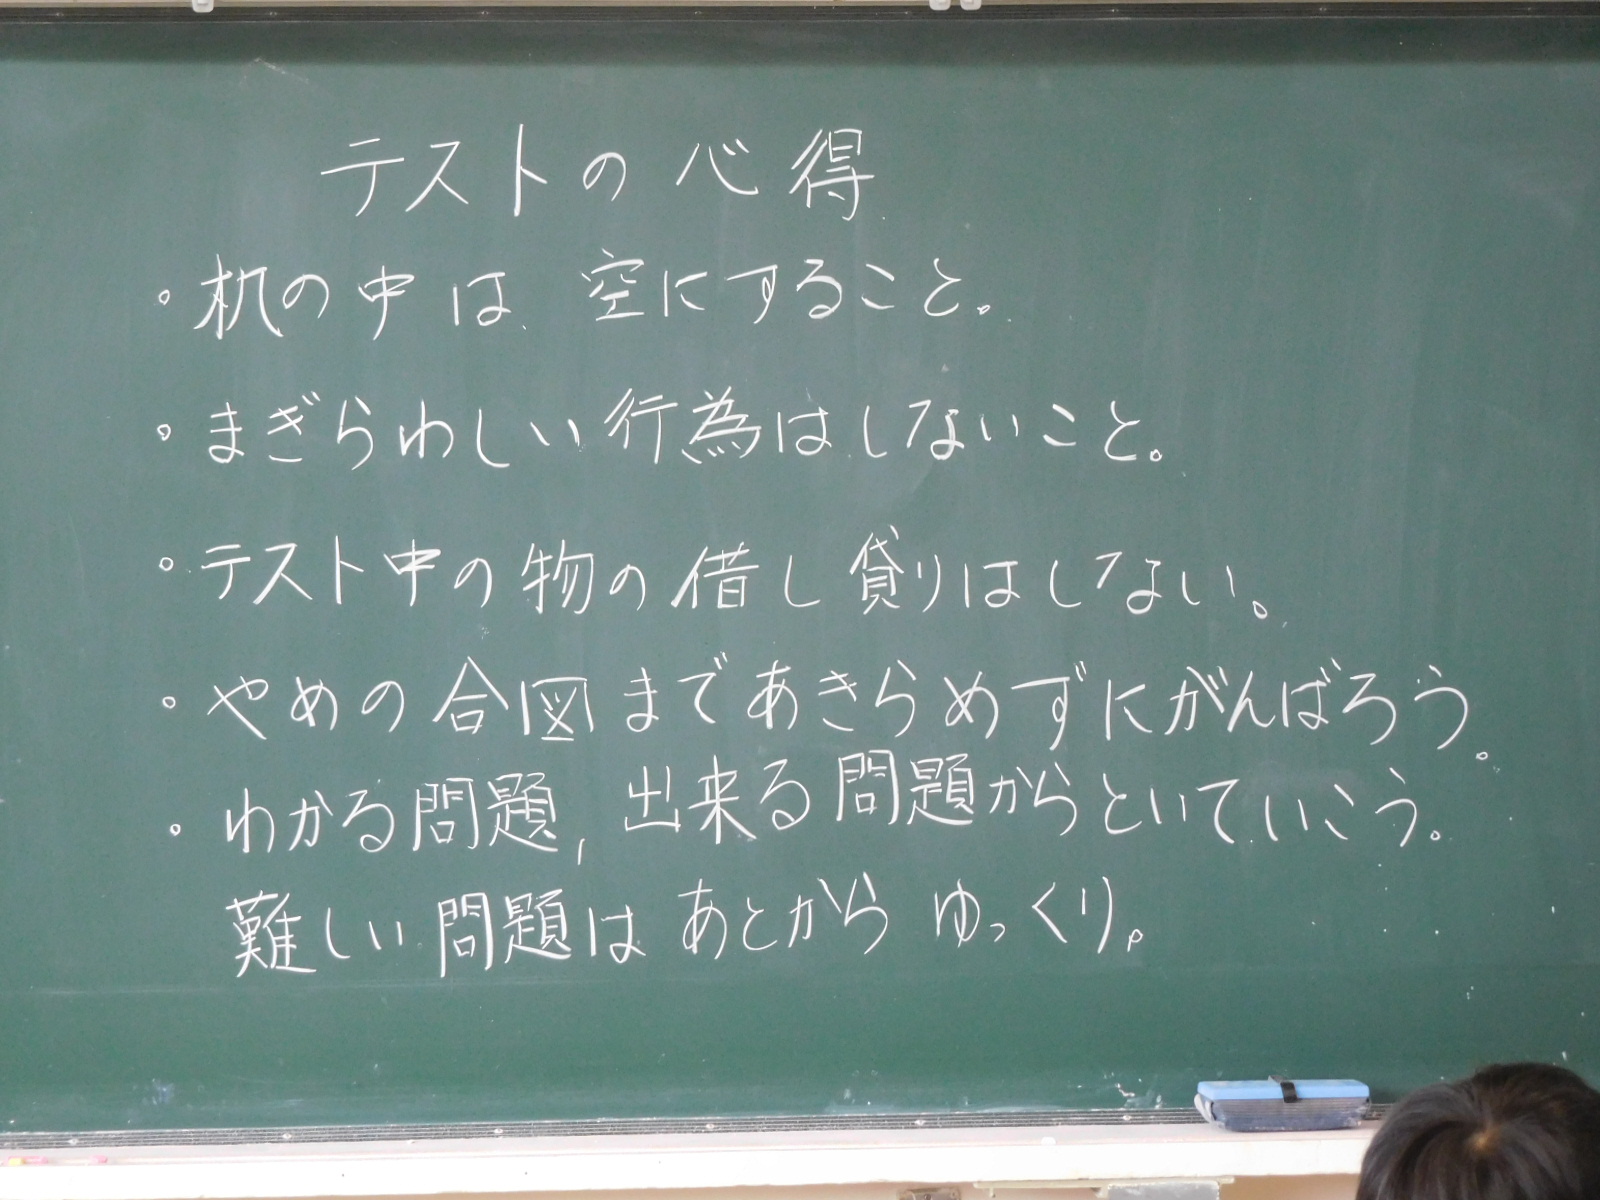 テストの心得
・机の中は空にすること。
・まぎらわしい行為はしないこと。
・テスト中の物の借し貸りはしない。
・やめの合図まであきらめずにがんばろう。
・わかる問題,出来る問題からといていこう。
難しい問題はあとからゆっくり。